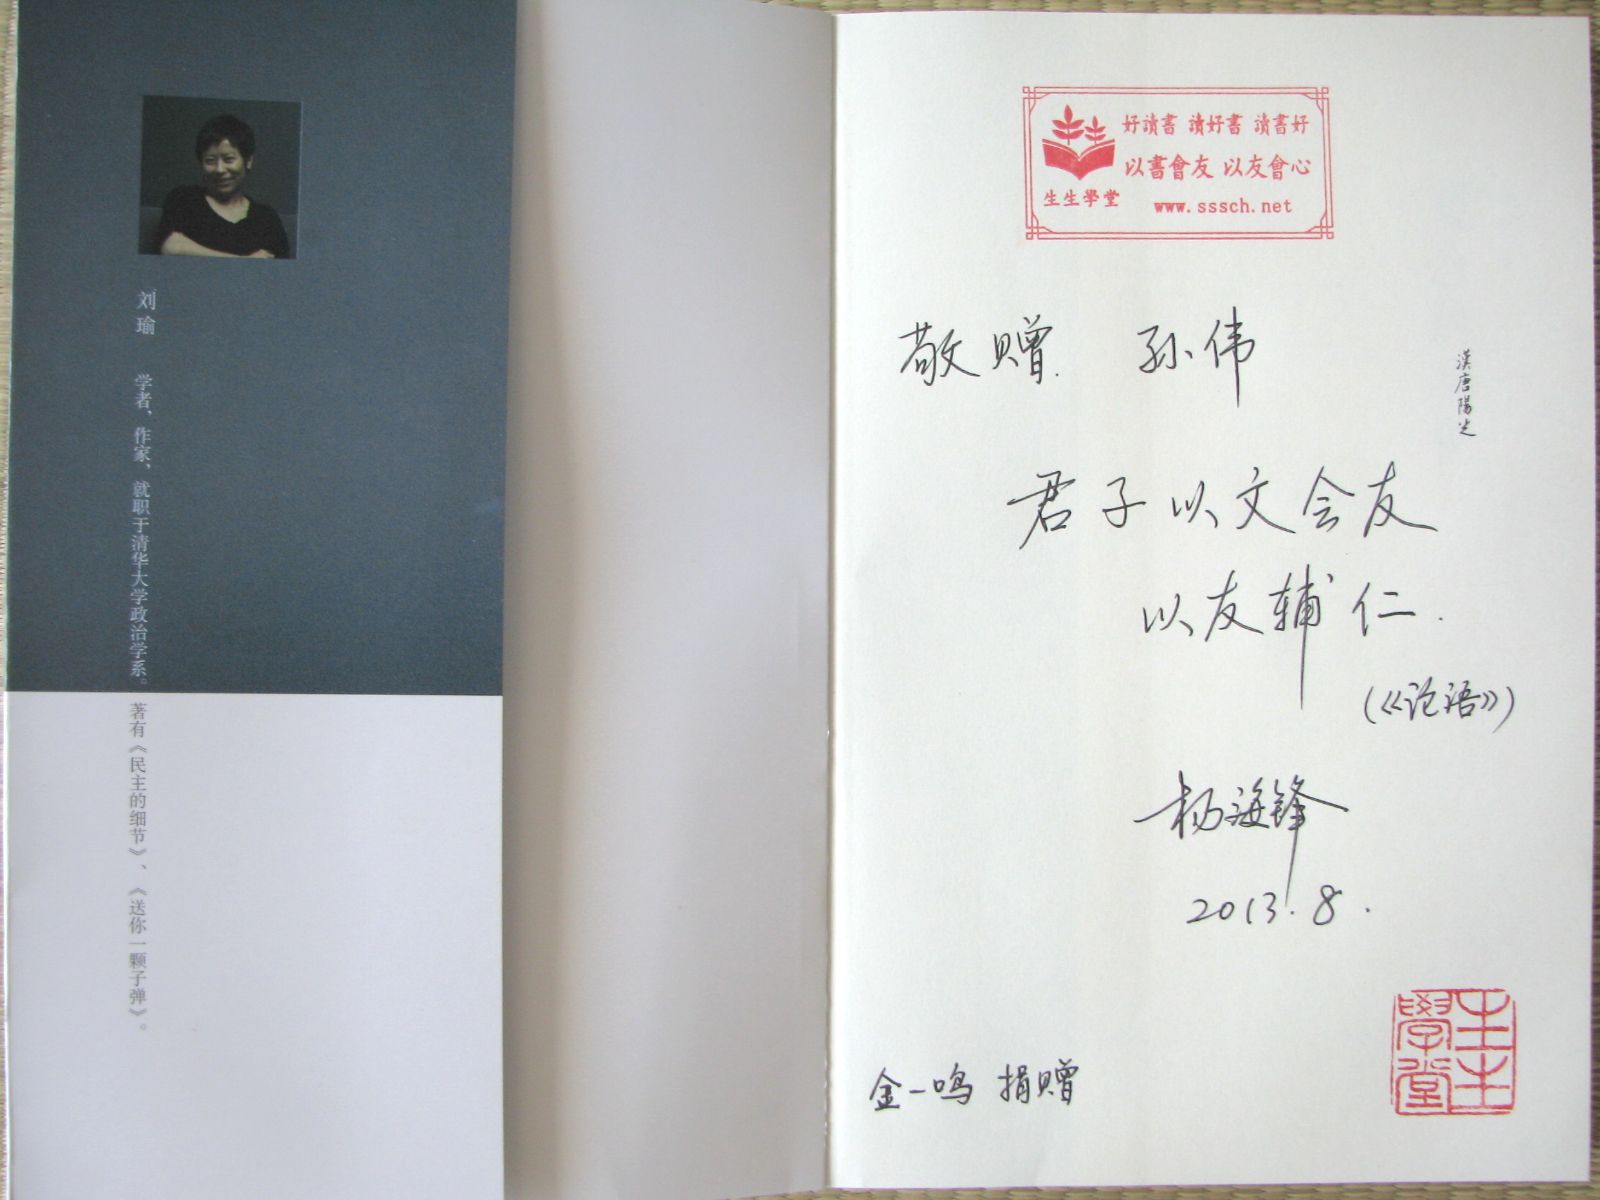 刘瑜
学者、作家、就职于清华大学政治学系。著有《民主的细节》、《送你一颗子弹》。
好讀書 讀好書 讀書好
以書會友 以友會心
生生學堂
www.sssch.net
敬赠 孙伟
漢唐陽光
君子以文会友
以友辅仁.
(《论语》)
杨海锋
2013.8.
生生學堂
金一鸣 捐赠